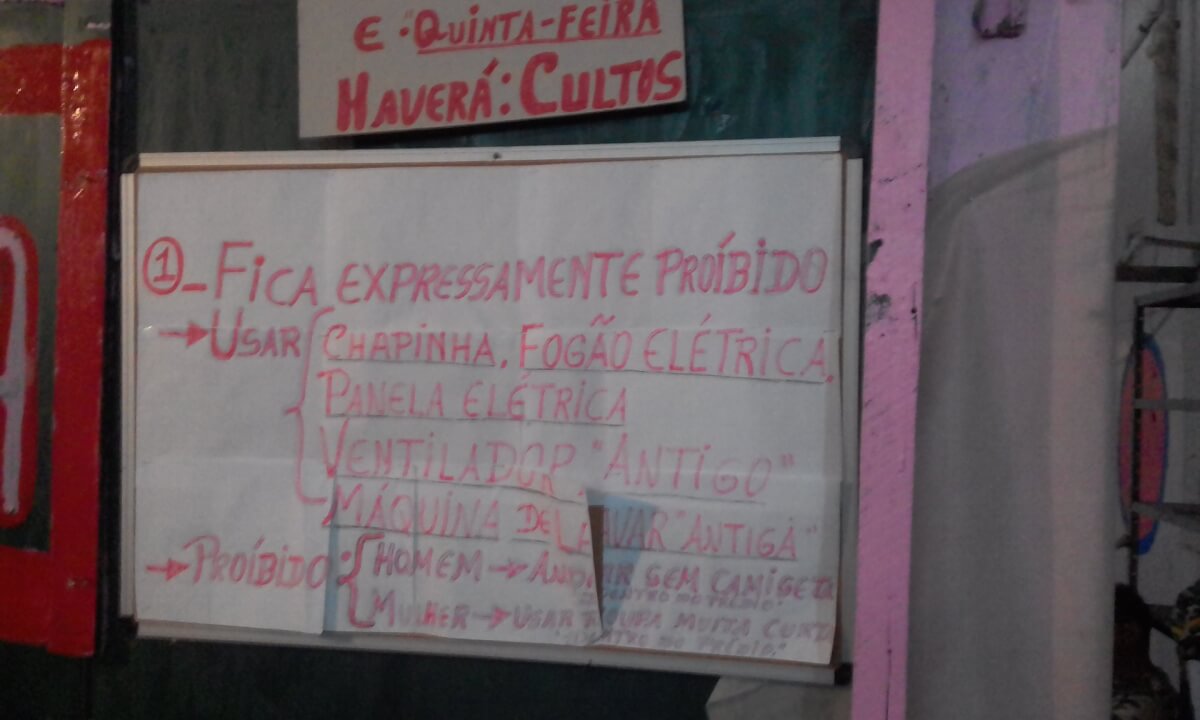 E "QUINTA-FEIRA
HAVERÁ: CULTOS
1 - FICA EXPRESSAMENTE PROÍBIDO
→ USAR { CHAPINHA, FOGÃO ELÉTRICA,
PANELA ELÉTRICA
VENTILADOR "ANTIGO"
MÁQUINA DE LAVAR "ANTIGA"
→ PROÍBIDO: { HOMEM → ANDAR SEM CAMISETA
"DENTRO NO PRÉDIO"
MULHER → USAR ROUPA MUITA CURTA
"DENTRO NO PRÉDIO."
A